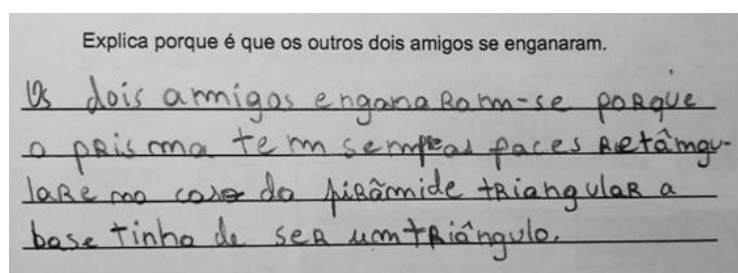 Explica porque é que os outros dois amigos se enganaram.
Os dois amigos enganaram-se porque
o prisma tem sempre as faces retângu-
lare no caso da pirâmide triangular a
base tinha de ser um triângulo.